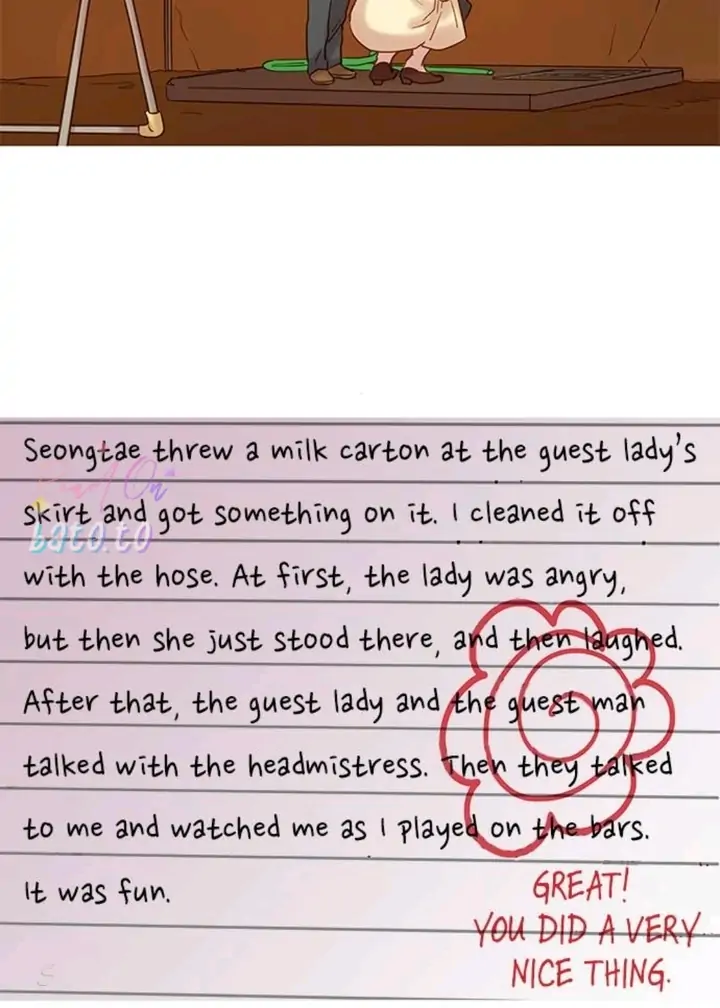 Seongtae threw a milk carton at the guest lady's
Read On
skirt and got something on it. I cleaned it off
bato.to
with the hose. At first, the lady was angry,
but then she just stood there, and then laughed.
After that, the guest lady and the guest man
talked with the headmistress. Then they talked
to me and watched me as I played on the bars.
It was fun.
GREAT!
YOU DID A VERY
NICE THING.